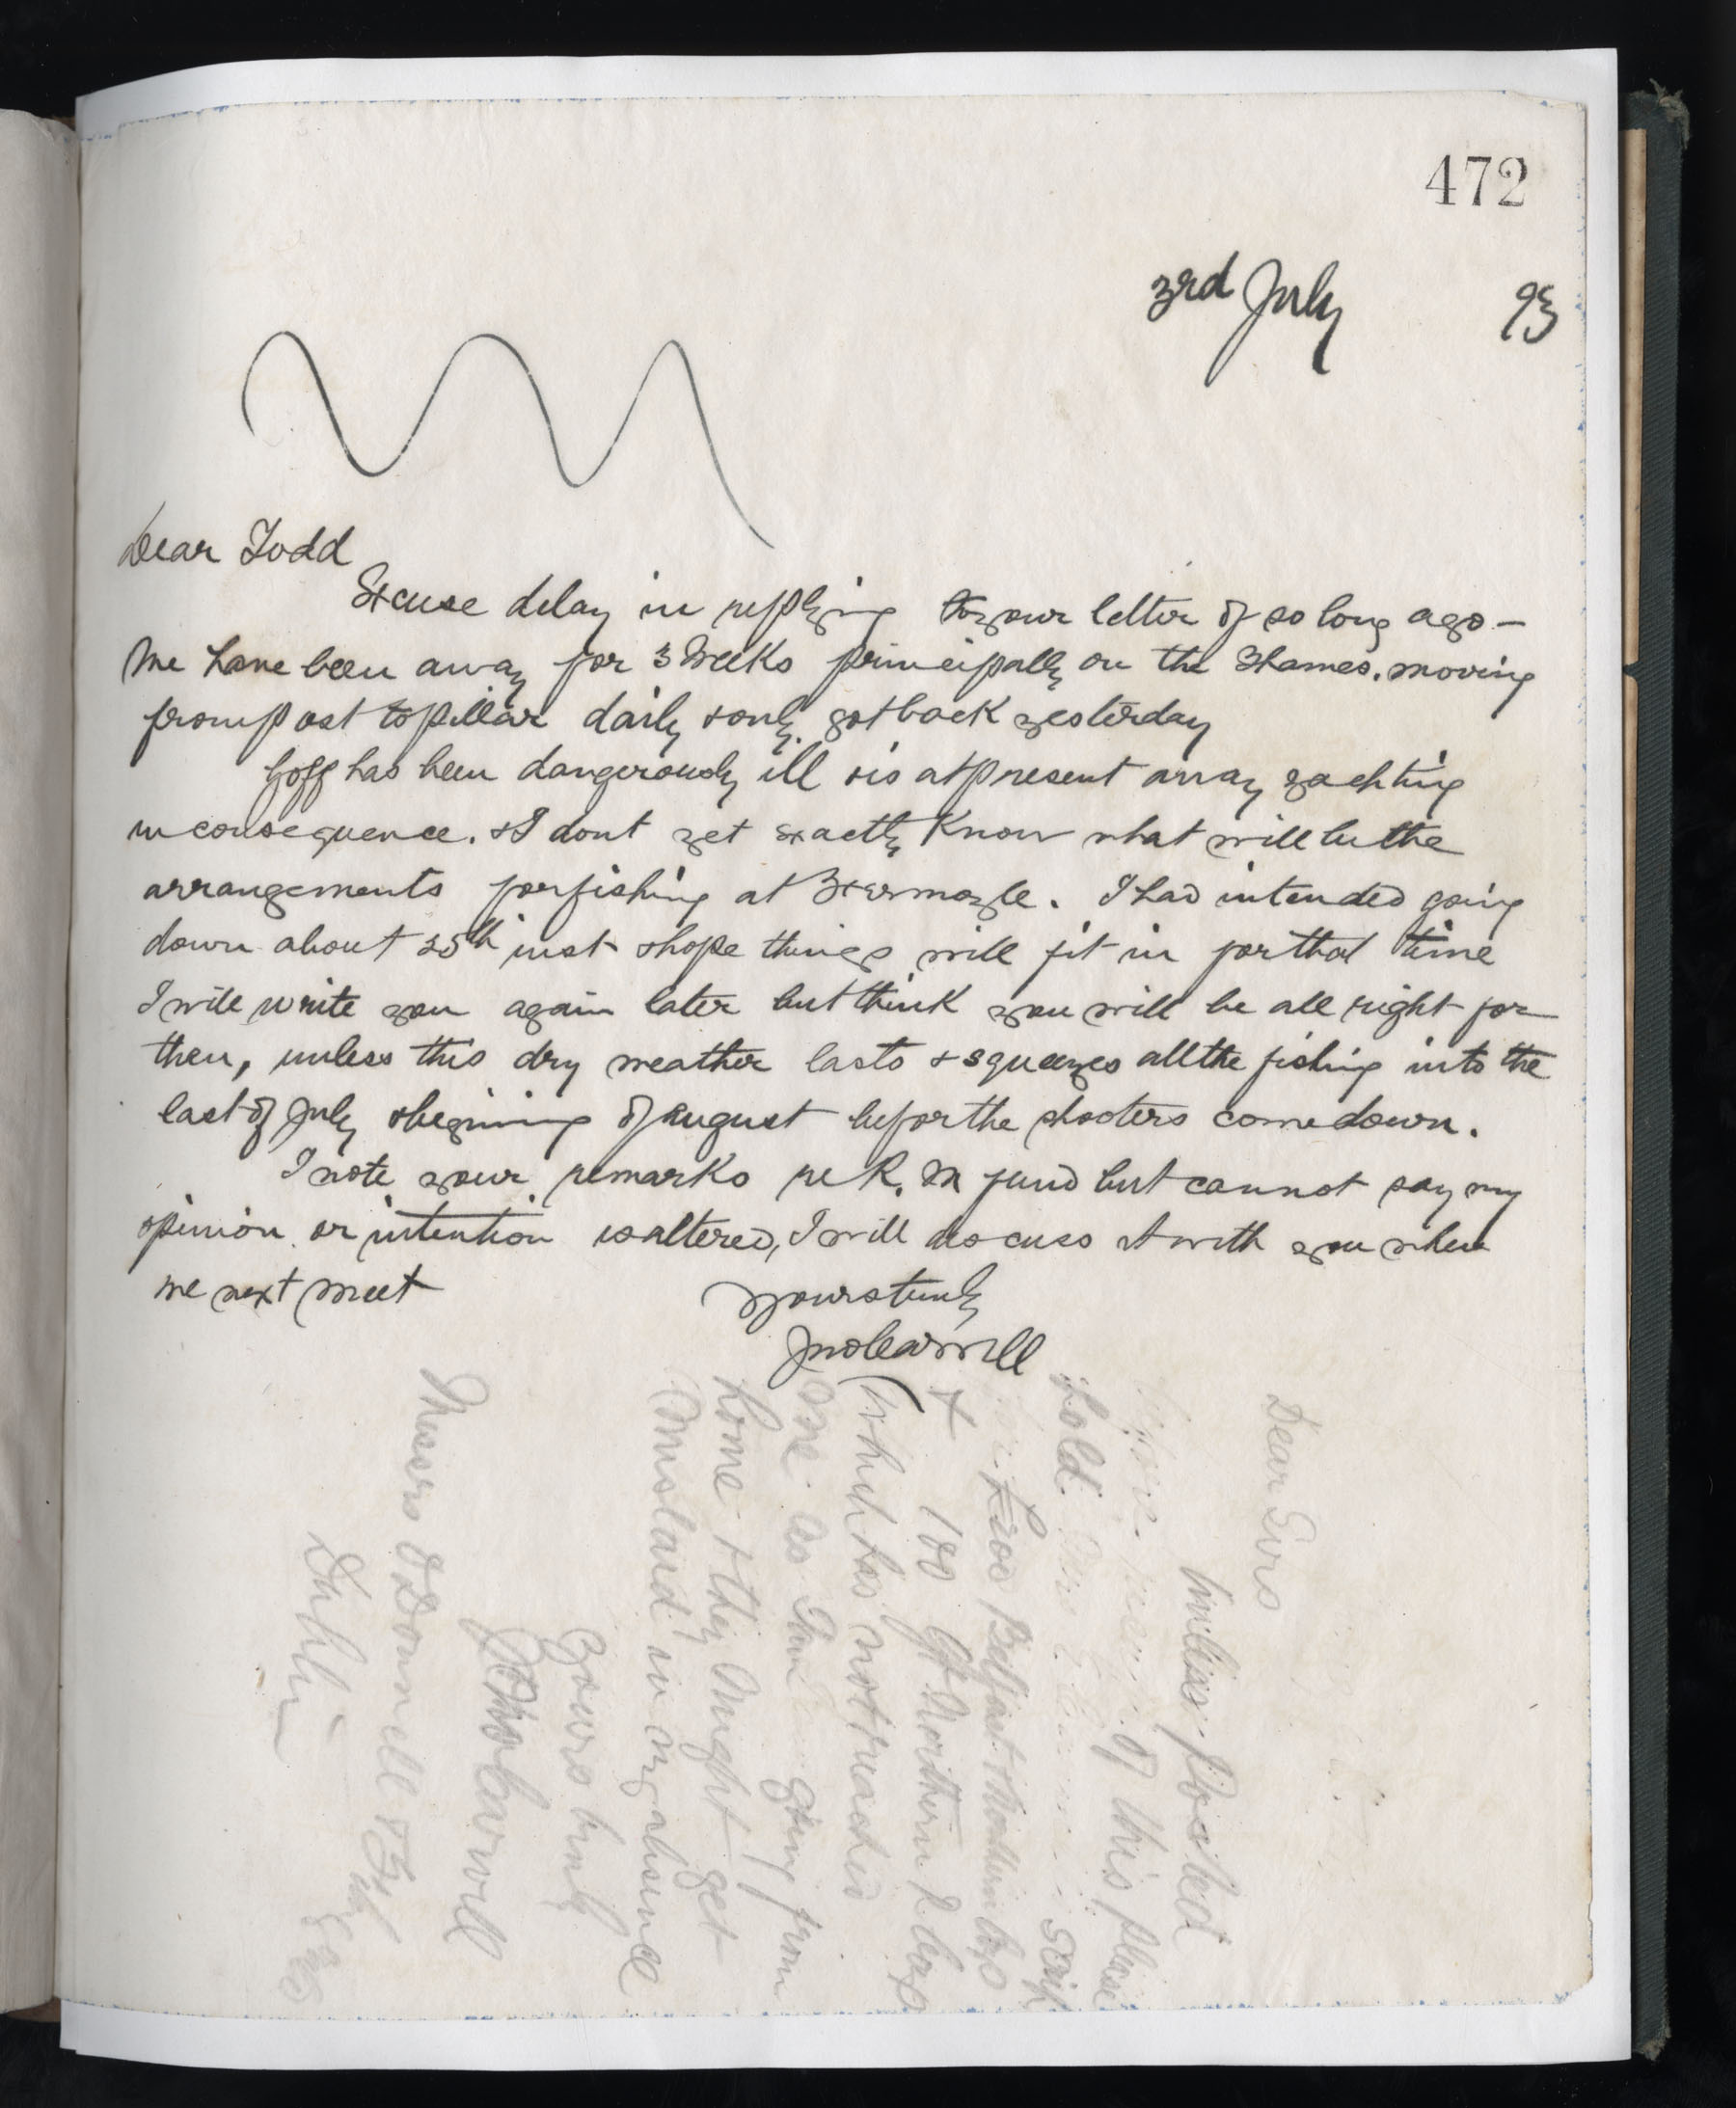 472
3rd July 93
Dear Todd
Excuse delay in replying to your letter of so long ago —
We have been away for 3 Weeks principally on the Thames. moving
from post to pillar daily & only got back yesterday
Goff has been dangerously ill & is at present away yachting
in consequence. & I dont yet exactly Know what will be the
arrangements for fishing at . I had intended going
down about 25th inst & hope things will fit in for that time
I will write you again later but think you will be all right for
then, unless this dry weather lasts & squeezes all the fishing into the
last of July & begining of August befor the shooters come down.
I note your remarks re R. M fund but cannot say my
opinion or intention is altered, I will discuss it with you when
we next meet
Yours truly
Dear Sirs
Unless posted
of this please
sold. Scrip
£200 Belfast & Northern
& 100 Gt Northern
which has not reached
me. as I am going from
home & they might get
mislaid in my absence
Yours truly
Messrs O'Donnell & Fitz
Dublin